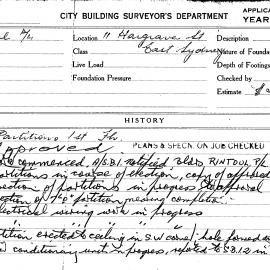 CITY BUILDING SURVEYOR'S DEPARTMENT
APPLICA
YEAR
Location 11 Hargrave St
Description
Class East Sydney
Nature of Found
Live Load
Depth of Footings
Foundation Pressure
Checked by
Estimate $
HISTORY
Partitions 1st Flr.
Approved
PLANS & SPECN. ON JOB CHECKED
commenced, A/S.B.I. notified Bldr RINTOUL P/L
partitions in course of erection, copy of approved
erection of partitions in progress approval
partition nearing completion
electrical wiring work in progress
tition erected to ceiling in S.W. corner, hole formed
conditioning unit in progress, to S.B.I.2 in